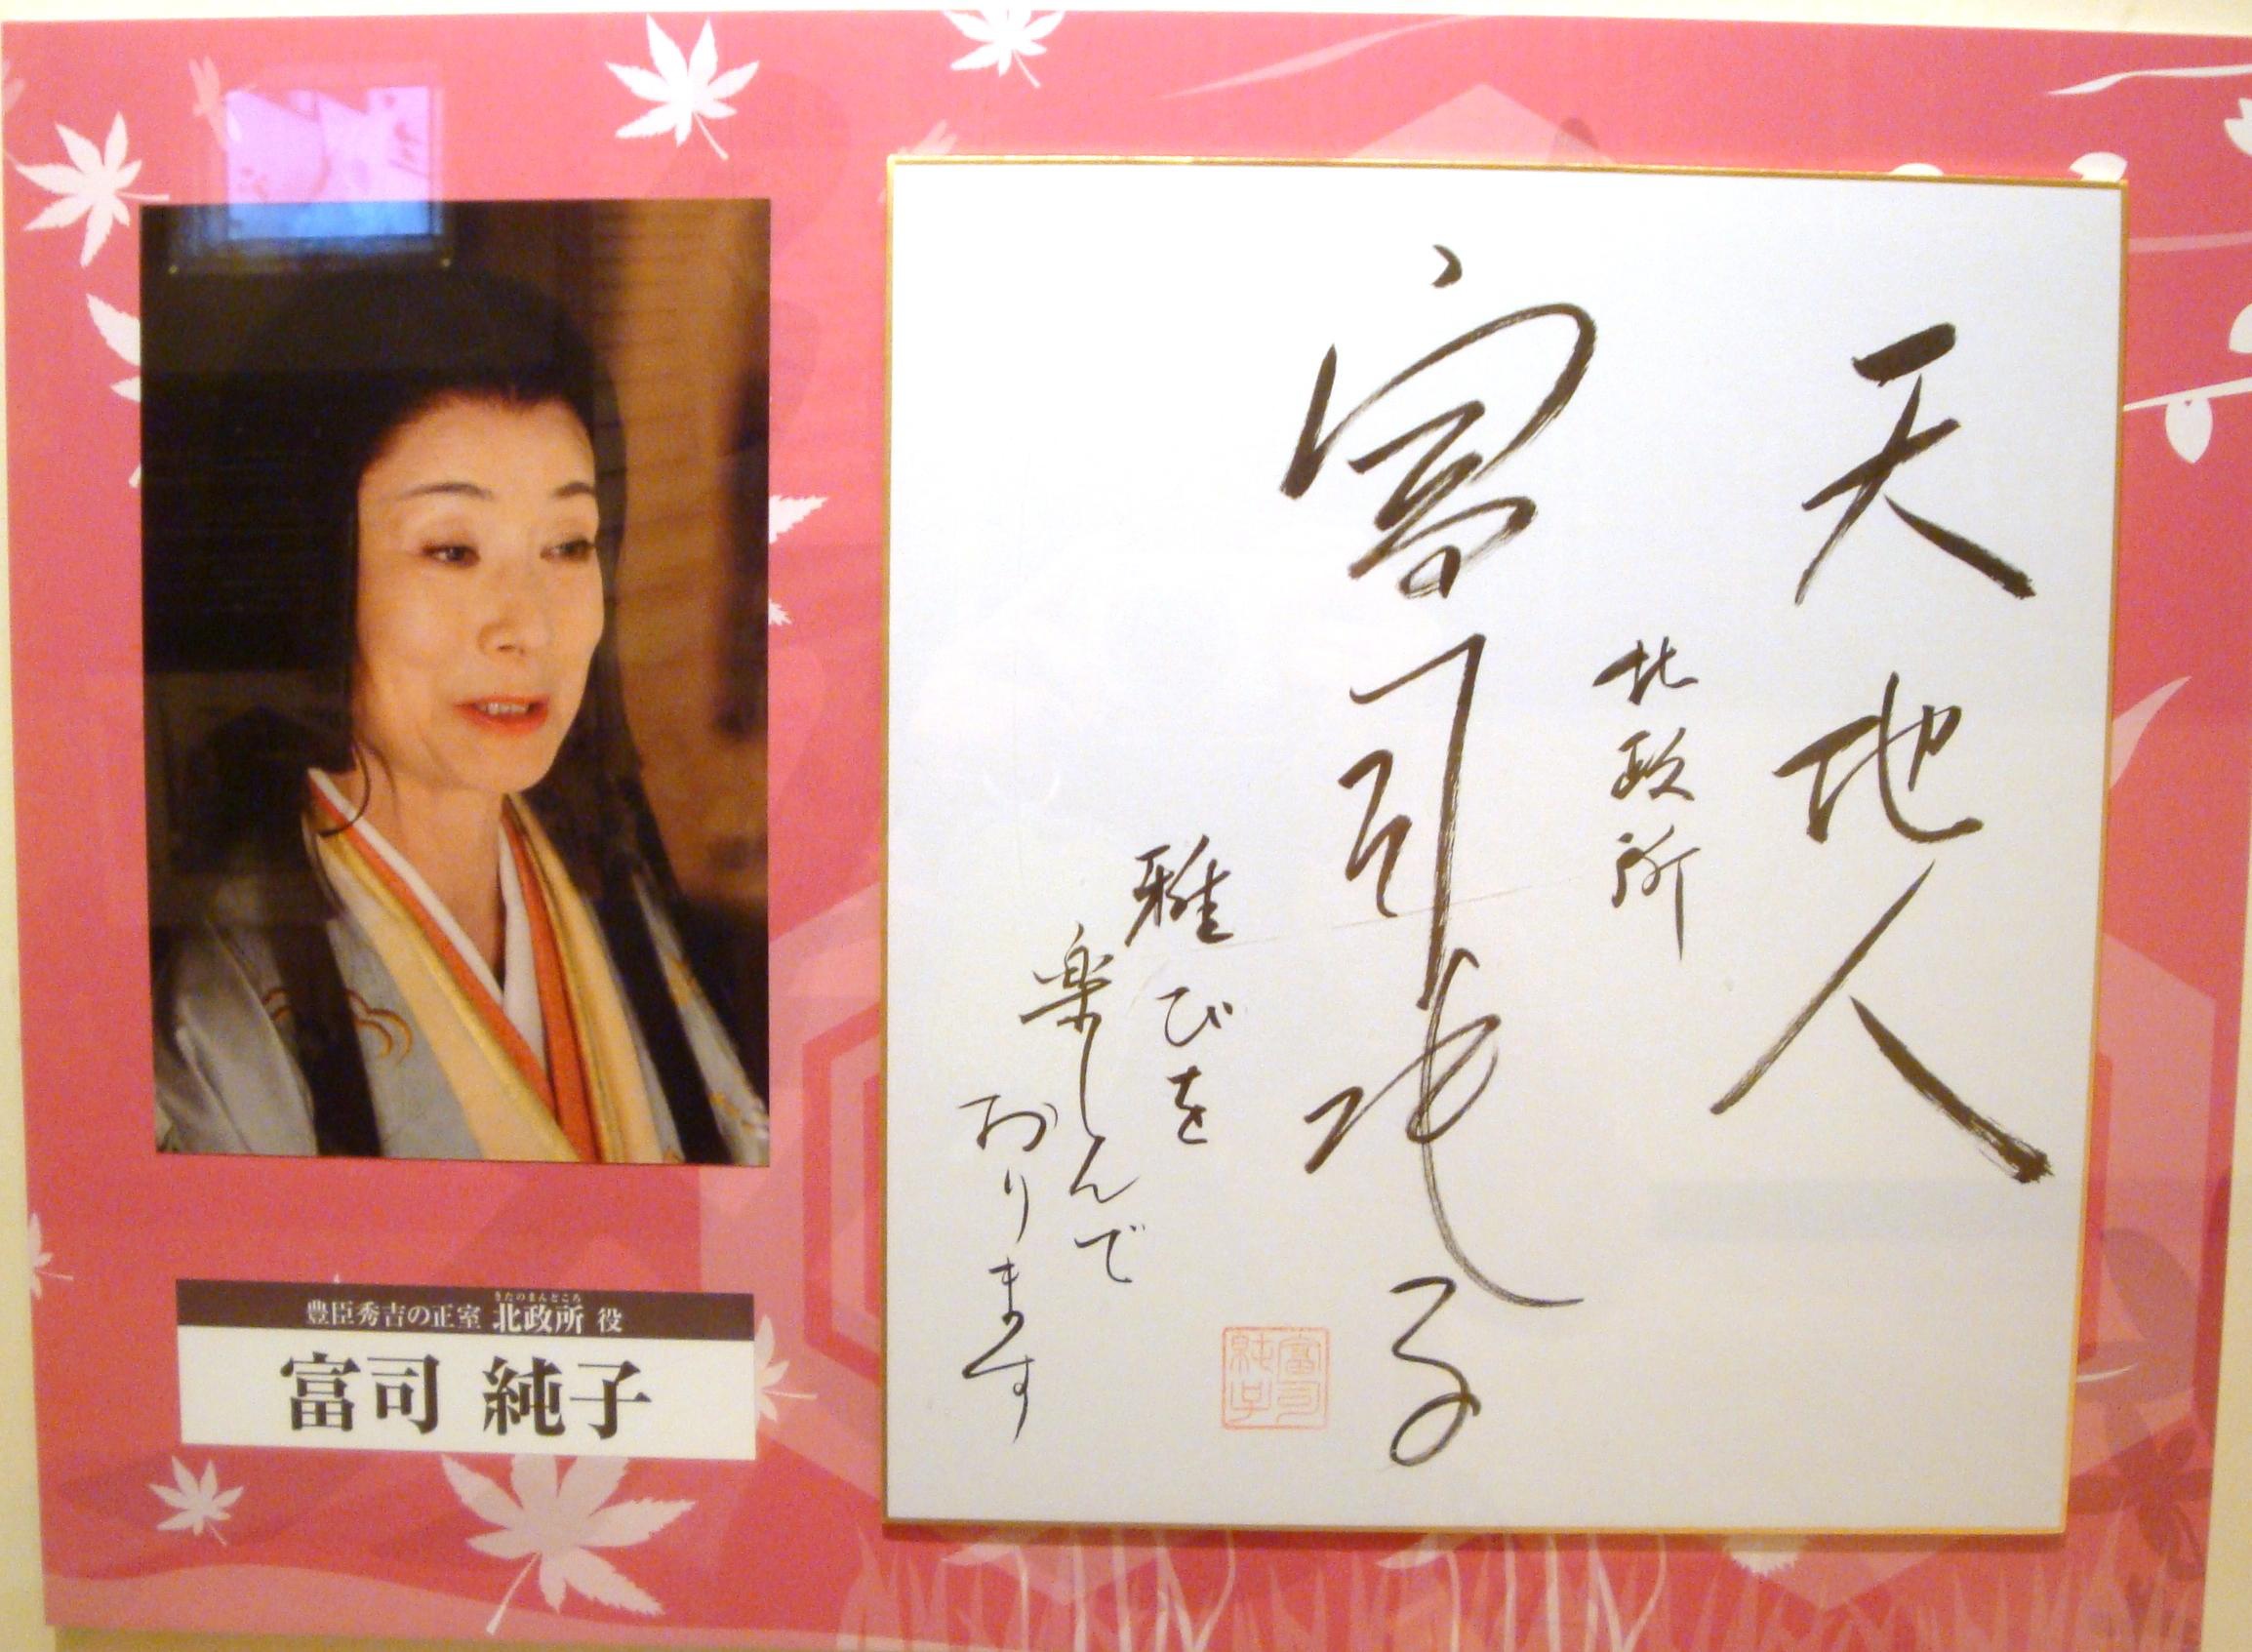 天地人
北政所
富司純子
雅びを
楽しんで
おります
富司
純子
きたのまんどころ
豊臣秀吉の正室 北政所 役
富司 純子